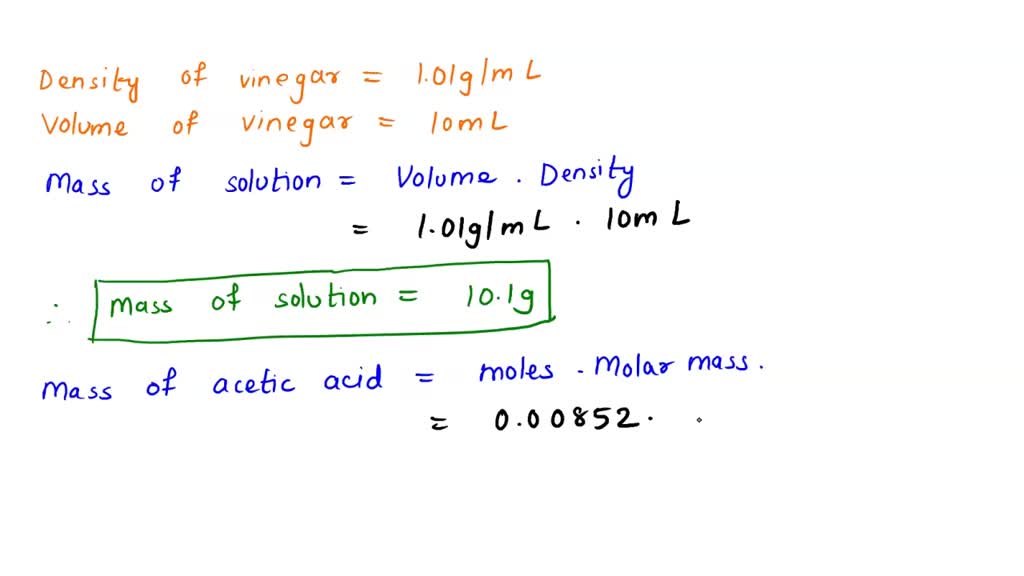 Density of vinegar = 1.01g/mL
Volume of vinegar = 10mL
Mass of solution = Volume . Density
= 1.01g/mL . 10mL
∴ Mass of solution = 10.1g
Mass of acetic acid = moles . Molar mass.
= 0.00852 .